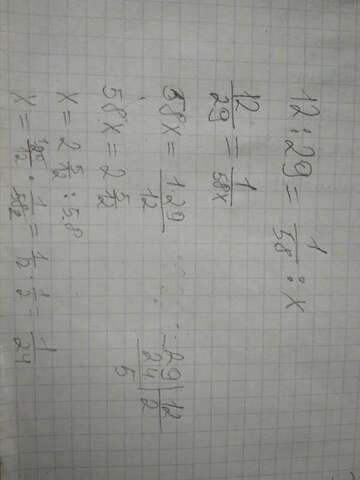 12 : 29 = 1/58 : x
12/29 = 1/58x
58x = 1·29/12
58x = 2 5/12
x = 2 5/12 : 58
x = 29/12 · 1/58 = 1/12 · 1/2 = 1/24
29 | 12
24 | 2
5